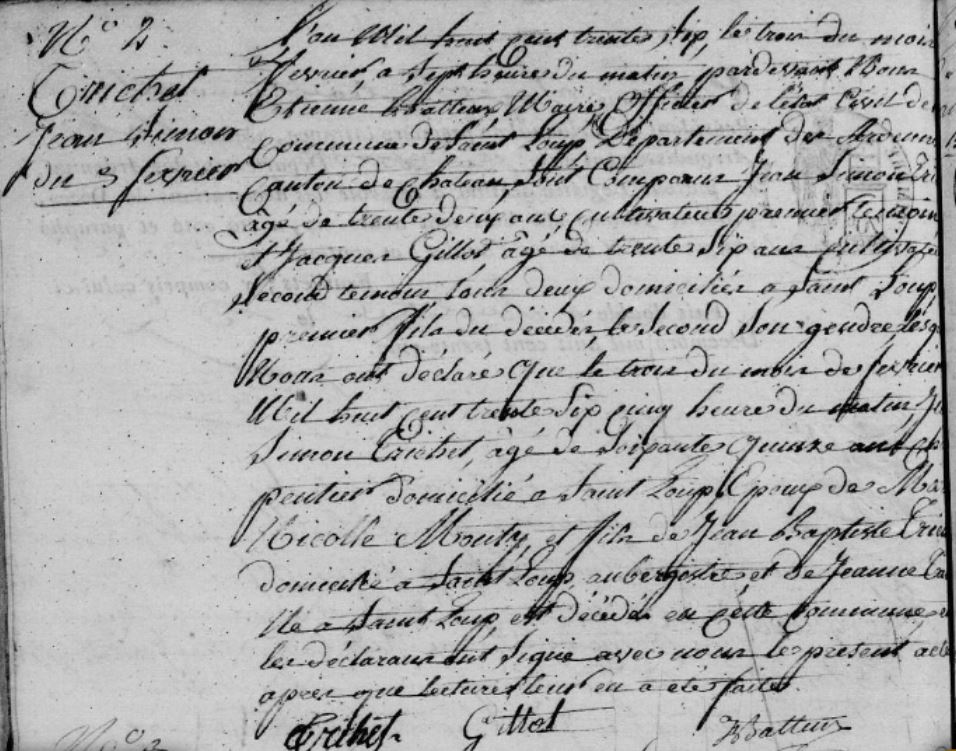 N.o 2
Trichet
Jean Simon
du 3 fevrier
L'an Mil huit cent trente six, le trois du mois
fevrier a Sept heure du matin pardevant Nous
Etienne Batteux Maire Officier de l'état Civil de
Commune de Saint Loup Département des Ardennes
Canton de Chateau, sont Comparus Jean Simon Tri
âgé de trente deux ans Cultivateur premier temoin
et Jacques Gillot âgé de trente Six ans cultivate
Second temoin tous deux domiciliés a Saint Loup
premier fils du décédé le Second Son gendre lesq
Nous ont déclaré que le trois du mois de fevrier
Mil huit cent trente Six cinq heure du matin, Je
Simon Trichet, âgé de Soixante quinze ans Cha
pentier domicilié a Saint Loup, Epoux de Mar
Nicolle Mouty, et fils de Jean Baptiste Tric
domicilié a Saint Loup aubergiste, et de Jeanne
Né a Saint Loup est décédé en cette Commune
les déclarans ont Signé avec nous le présent acte
après que lecture leur en a été faite.
Trichet Gillot Batteux
N.o 3